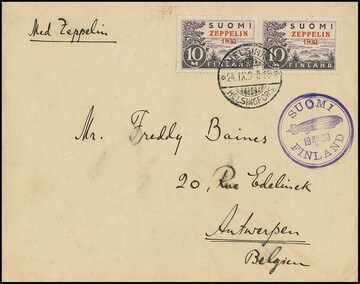 Med Zeppelin
SUOMI SUOMI
ZEPPELIN ZEPPELIN
1930 1930
10 M FINLAND 10 M FINLAND
HELSINKI
24.IX.3
HELSINGFORS
SUOMI
FINLAND
Mr. Freddy Baines
20, Rue Edelinck
Antwerpen
Belgien